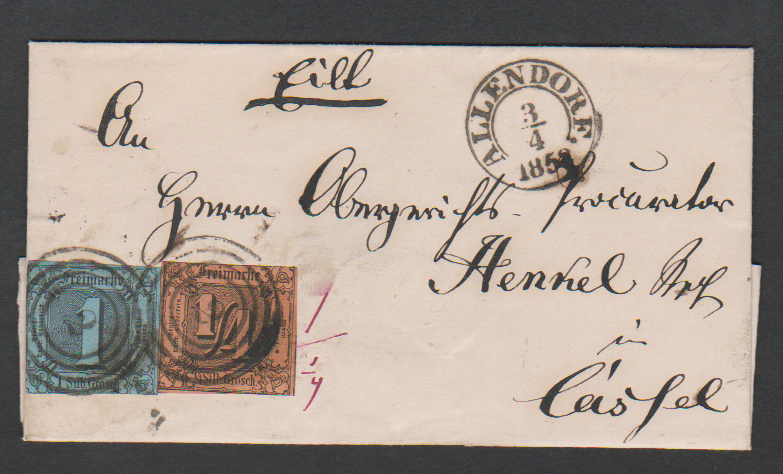 Eilt
ALLENDORF.
3/4
185
An
Herrn Obergerichts-Procurator
Henkel
in
Cassel
Freimarke
1
1 Silb. Grosch.
Freimarke
1/2
1/2 Silb. Grosch.